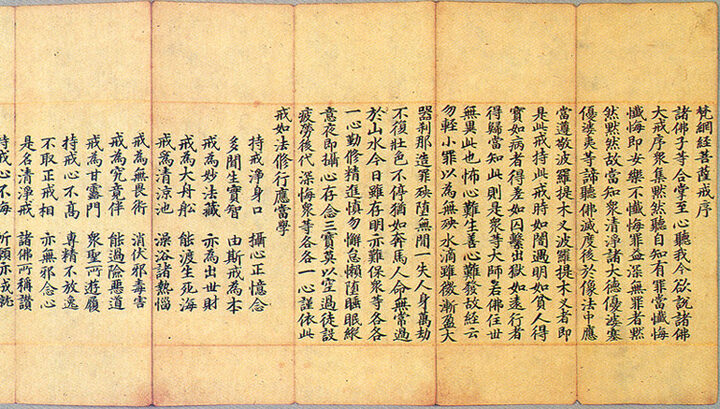 梵網經菩薩戒序
諸佛子等合掌至心聽我今欲說諸佛
大戒序衆集默然聽自知有罪當懺悔
懺悔即安樂不懺悔罪益深無罪者默
然默然故當知衆清淨諸大德優婆塞
優婆夷等諦聽佛滅度後於像法中應
當遵敬波羅提木叉波羅提木叉者即
是此戒持此戒時如闇遇明如貧人得
寶如病者得差如囚繫出獄如遠行者
得歸當知此則是衆等大師若佛住世
無異此也怖心難生善心難發故經云
勿輕小罪以為無殃水滴雖微漸盈大
器剎那造罪殃墮無間一失人身萬劫
不復壯色不停猶如奔馬人命無常過
於山水今日雖存明亦難保衆等各各
一心勤修精進慎勿懈怠懶墮睡眠縱
意夜即攝心存念三寶莫以空過徒設
疲勞後代深悔衆等各各一心謹依此
戒如法修行應當學
持戒淨身口 攝心正憶念
多聞生實智 由斯戒為本
戒為妙法藏 亦為出世財
戒為大舟船 能渡生死海
戒為清涼池 澡浴諸熱惱
戒為無畏術 消伏邪毒害
戒為究竟伴 能過險惡道
戒為甘露門 衆聖所遊履
持戒心不高 專精不放逸
不取正戒相 亦無邪念心
是名清淨戒 諸佛所稱讚
持戒心不悔 所願亦成就